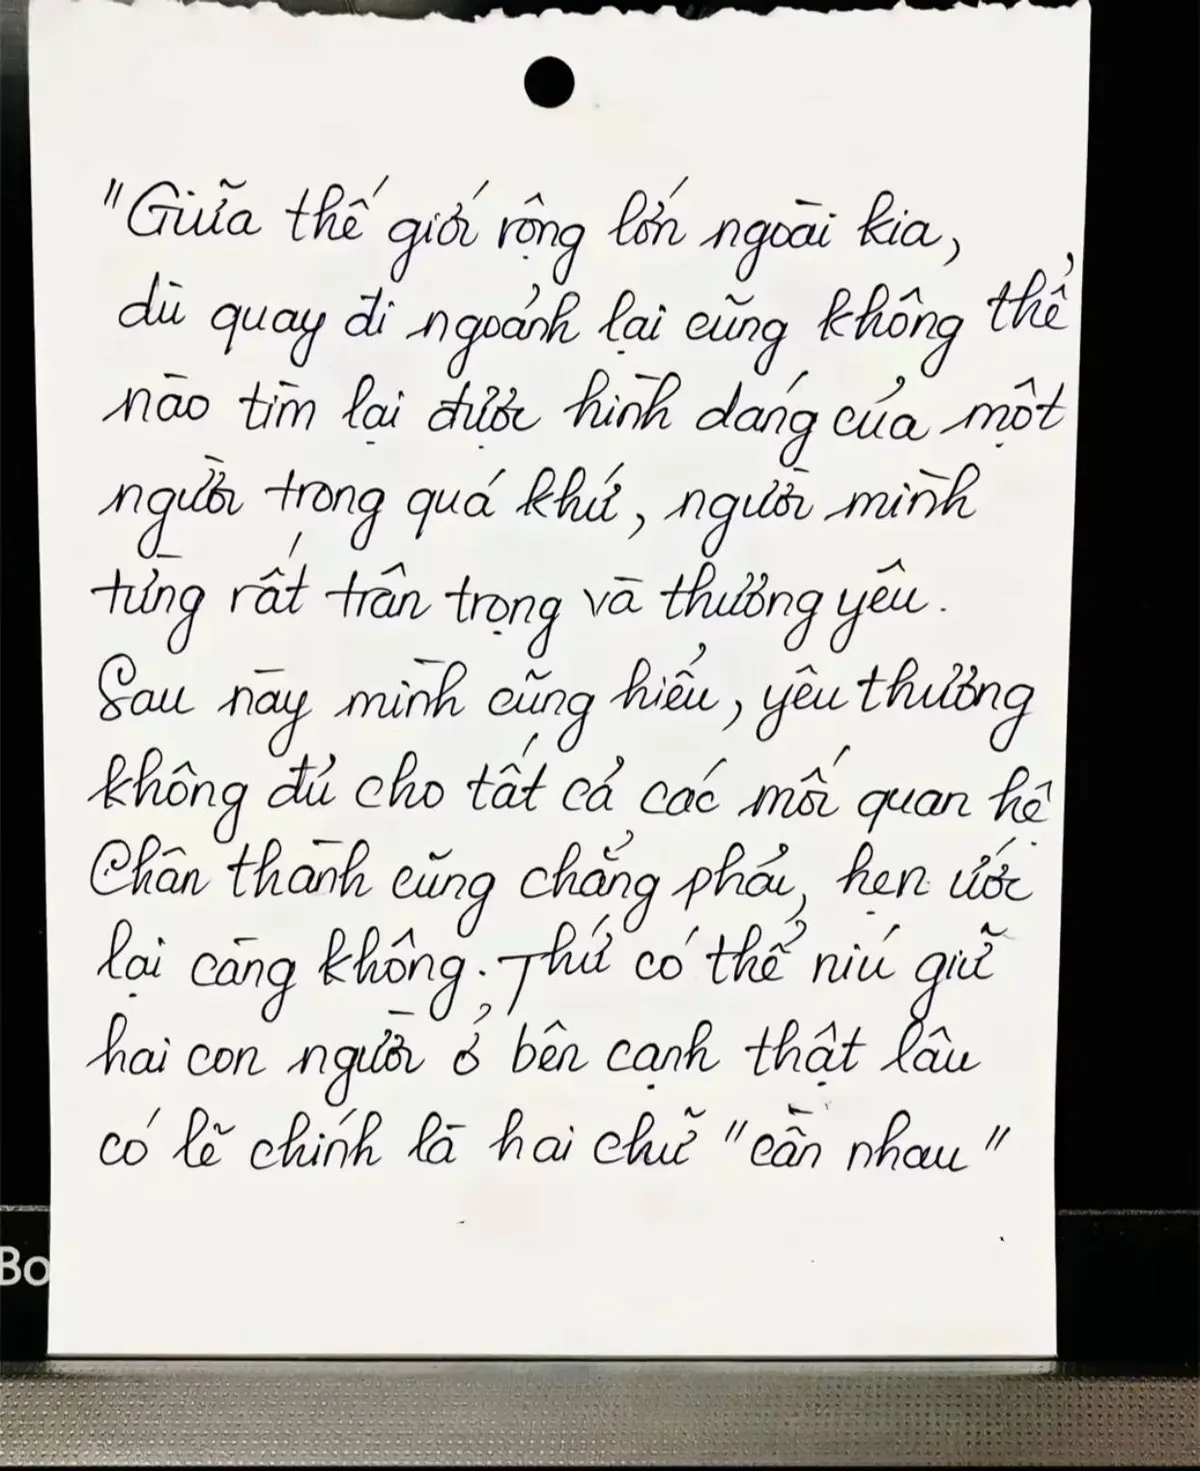 "Giữa thế giới rộng lớn ngoài kia,
dù quay đi ngoảnh lại cũng không thể
nào tìm lại được hình dáng của một
người trong quá khứ, người mình
từng rất trân trọng và thương yêu.
Sau này mình cũng hiểu, yêu thương
không đủ cho tất cả các mối quan hệ
Chân thành cũng chẳng phải, hẹn ước
lại càng không. Thứ có thể níu giữ
hai con người ở bên cạnh thật lâu
có lẽ chính là hai chữ "cần nhau"
Bo